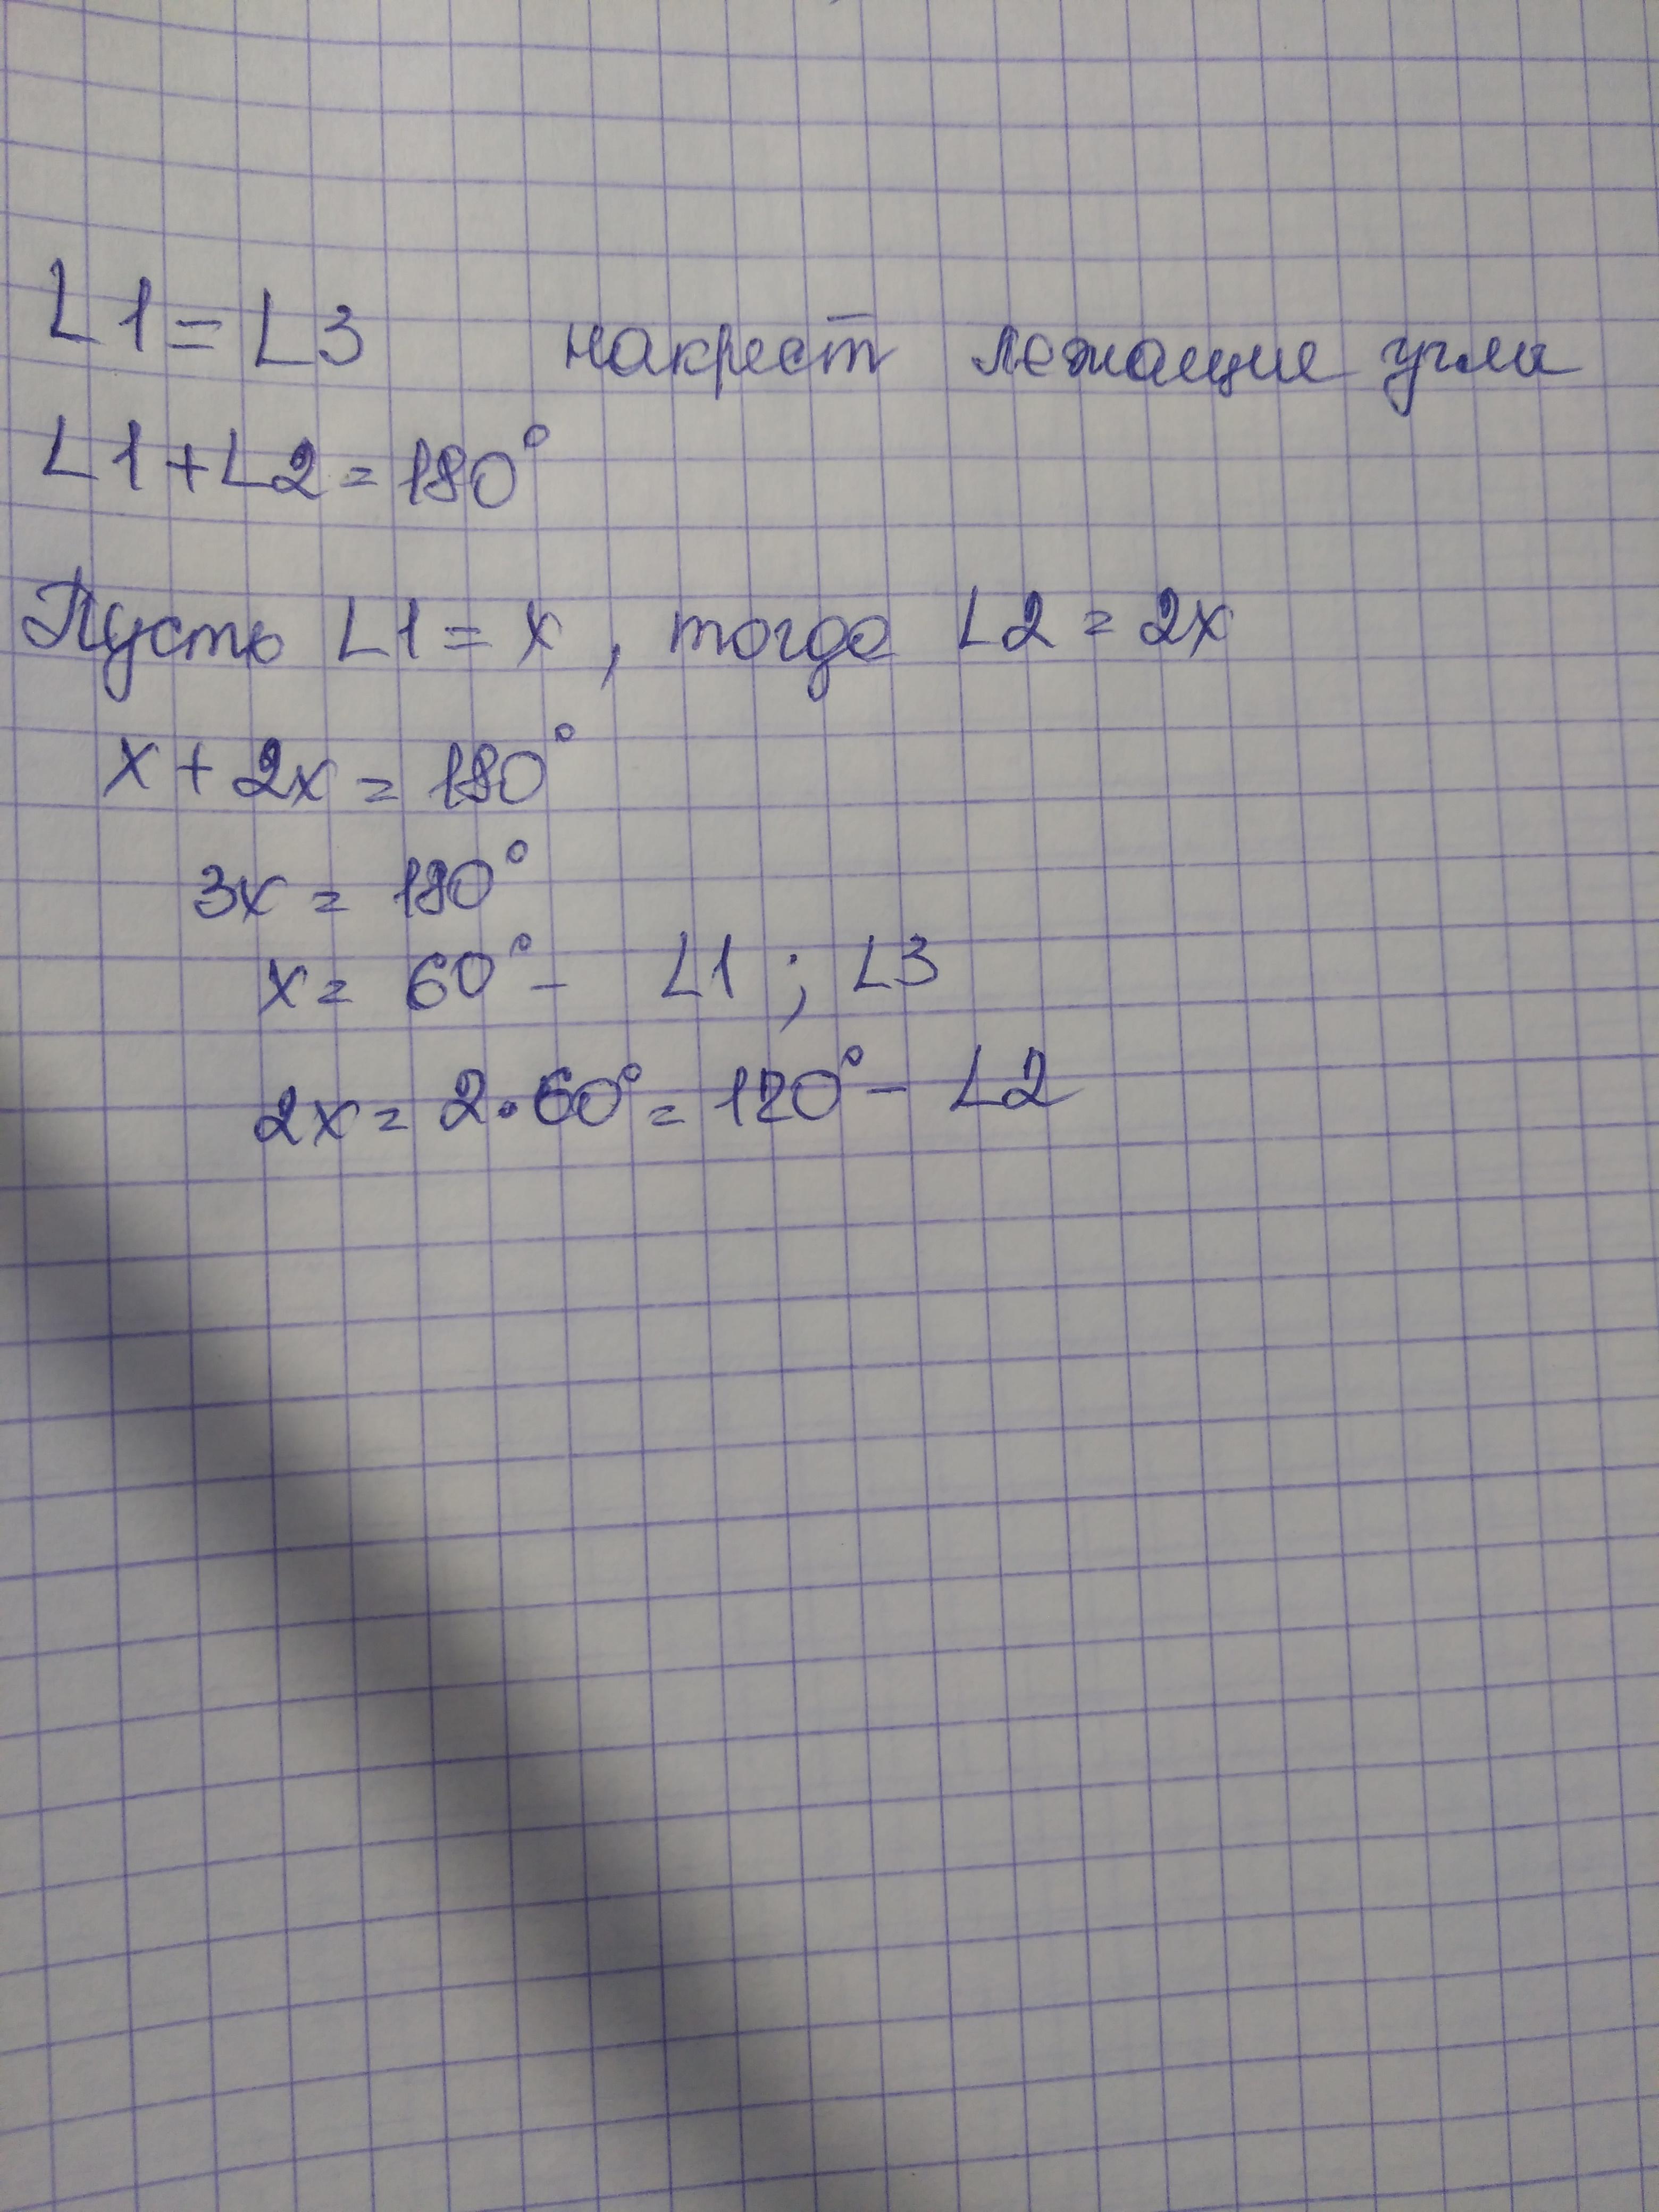 ∠1 = ∠3 накрест лежащие углы
∠1 + ∠2 = 180°
Пусть ∠1 = x, тогда ∠2 = 2x
x + 2x = 180°
3x = 180°
x = 60° - ∠1 ; ∠3
2x = 2 · 60° = 120° - ∠2